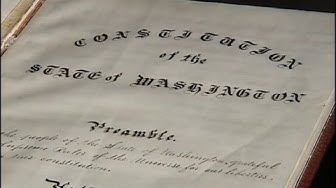 CONSTITUTION
of the
STATE of WASHINGTON
Preamble.
the people of the State of Washington, grateful
Supreme Ruler of the Universe for our liberties,
this constitution.